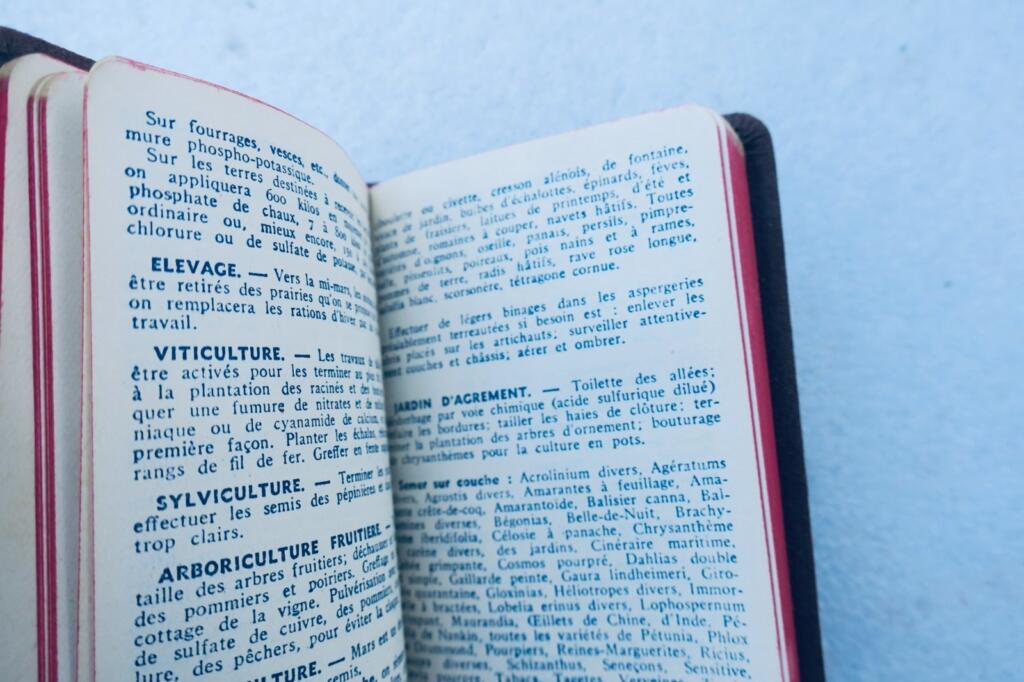 Sur fourrages, vesces, etc.,
mure phospho-potassique.
Sur les terres destinées à
on appliquera 600 kilos en
phosphate de chaux, 7 à 800
ordinaire ou, mieux encore, 150 à
chlorure ou de sulfate de
ELEVAGE. — Vers la mi-mars, les
être retirés des prairies qu'on se
on remplacera les rations d'hiver par
travail.
VITICULTURE. — Les travaux de
être activés pour les terminer au
à la plantation des racinés et des
quer une fumure de nitrates et de
niaque ou de cyanamide de calcium,
première façon. Planter les échalas,
rangs de fil de fer. Greffer en fente
SYLVICULTURE. — Terminer les
effectuer les semis des pépinières et
trop clairs.
ARBORICULTURE FRUITIERE. —
taille des arbres fruitiers; déchausser
des pommiers et poiriers. Greffage
cottage de la vigne. Pulvérisation
de sulfate de cuivre, des pommiers,
lure, des pêchers, pour éviter la
CULTURE. — Mars est
semis.
ou civette, cresson alénois, de fontaine,
de jardin, bulbes d'échalottes, épinards, fèves,
de fraisiers, laitues de printemps, d'été et
romaines à couper, navets hâtifs. Toutes
d'oignons, oseille, panais, persils, pimpre-
pissenlits, poireaux, pois nains et à rames,
de terre, radis hâtifs, rave rose longue,
blanc, scorsonère, tétragone cornue.
Effectuer de légers binages dans les aspergeries
terreautées si besoin est : enlever les
placés sur les artichauts; surveiller attentive-
ment couches et châssis; aérer et ombrer.
JARDIN D'AGREMENT. — Toilette des allées;
par voie chimique (acide sulfurique dilué)
les bordures; tailler les haies de clôture; ter-
la plantation des arbres d'ornement; bouturage
chrysanthèmes pour la culture en pots.
Semer sur couche : Acrolinium divers, Agératums
divers, Agrostis divers, Amarantes à feuillage, Ama-
crête-de-coq, Amarantoïde, Balisier canna, Bal-
diverses, Bégonias, Belle-de-Nuit, Brachy-
iberidifolia, Célosie à panache, Chrysanthème
carène divers, des jardins, Cinéraire maritime,
grimpante, Cosmos pourpré, Dahlias double
simple, Gaillarde peinte, Gaura lindheimeri, Giro-
quarantaine, Gloxinias, Héliotropes divers, Immor-
à bractées, Lobelia erinus divers, Lophospernum
Maurandia, Œillets de Chine, d'Inde, Pé-
de Nankin, toutes les variétés de Pétunia, Phlox
Drummond, Pourpiers, Reines-Marguerites, Ricius,
diverses, Schizanthus, Seneçons, Sensitive,
pourpre, Tabacs, Tagetes, Verveines,